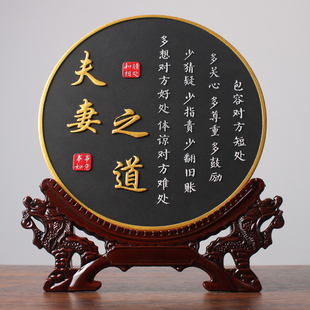 夫妻
之道
和睦
相处
包容对方短处
多关心 多尊重 多鼓励
少猜疑 少指责 少翻旧账
多想对方好处 体谅对方难处